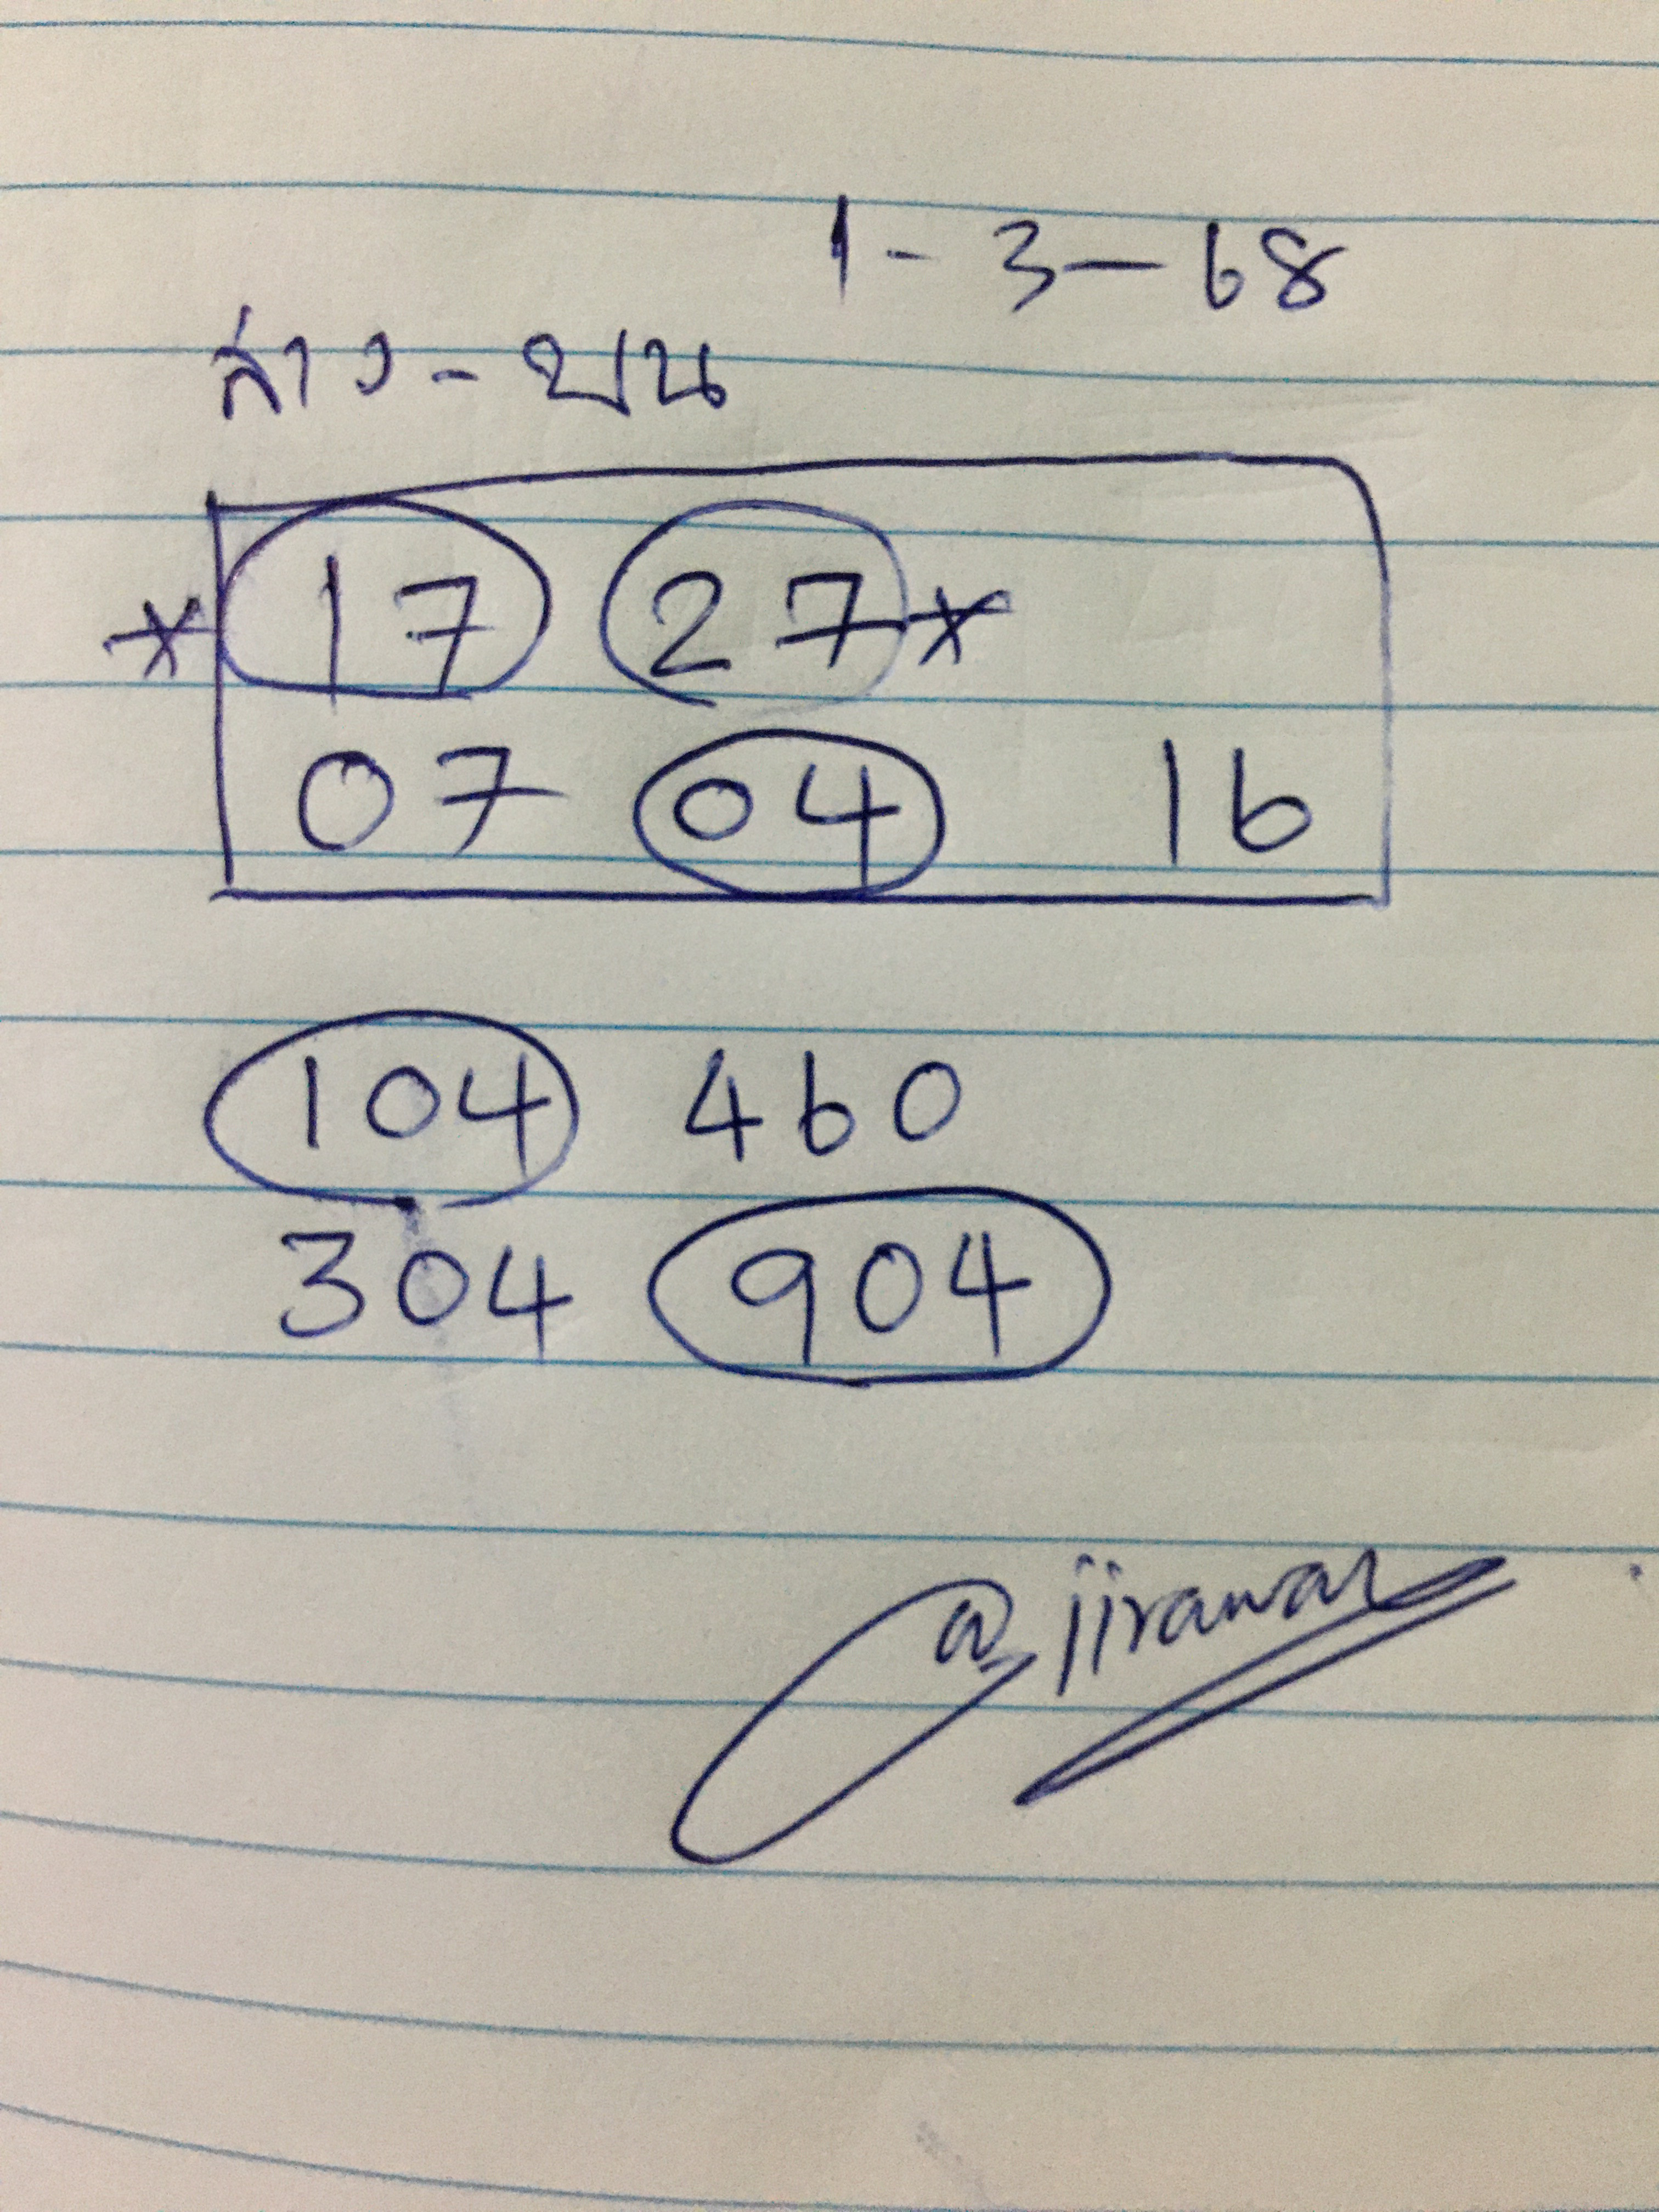 1-3-68
ล่าง-บน
* 17 27 *
07 04 16
104 460
304 904
@jirawar